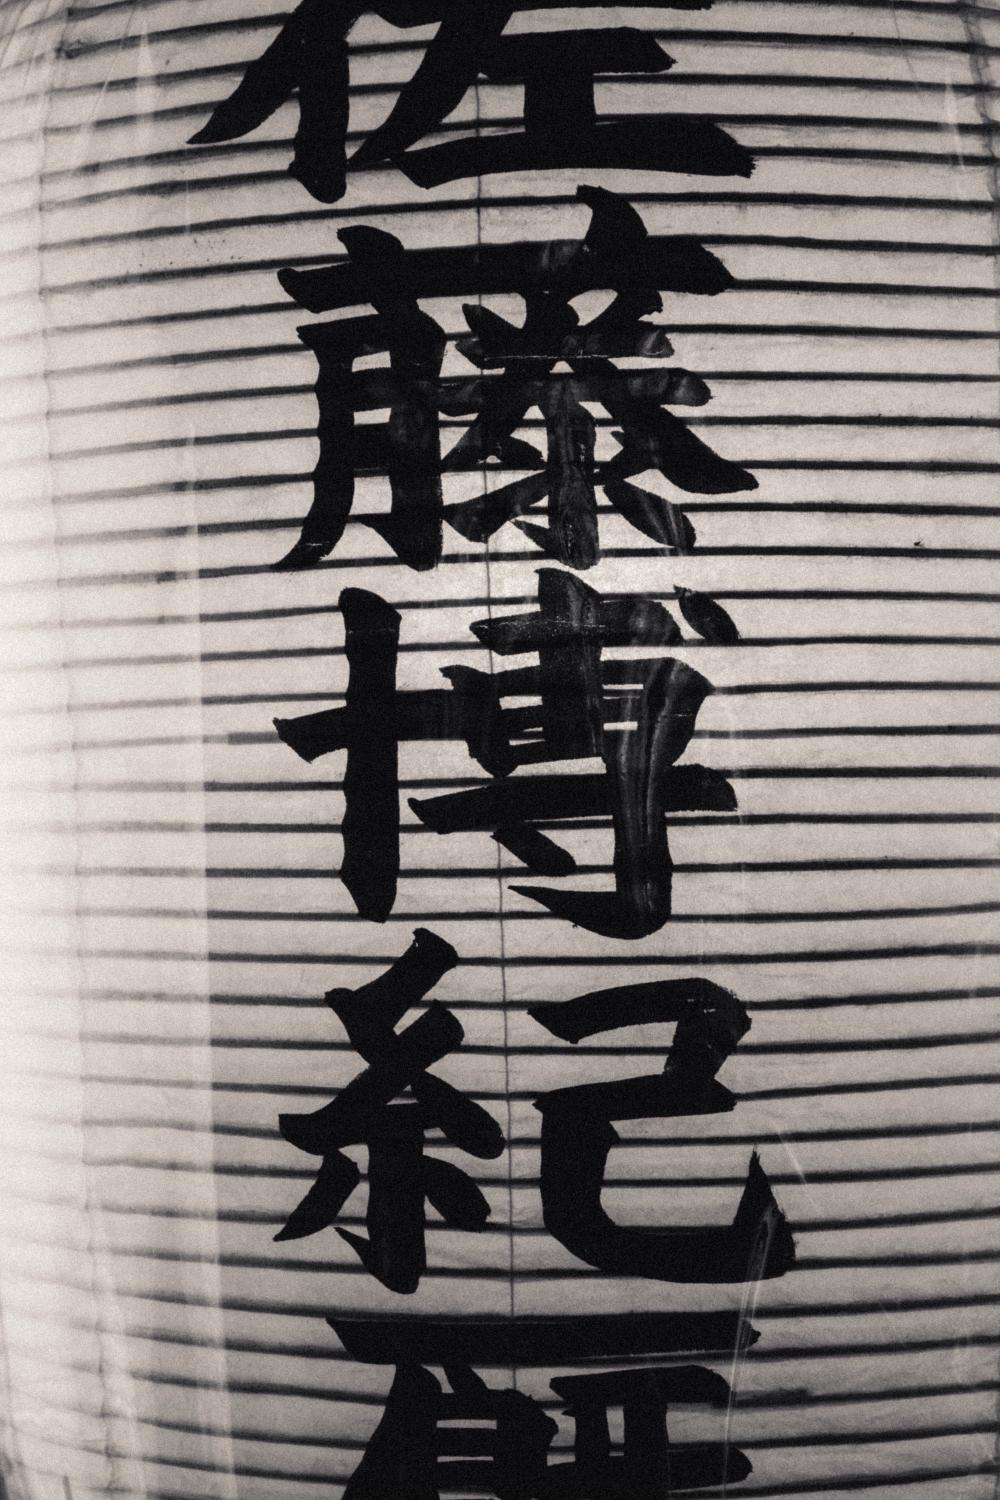 佐藤博紀